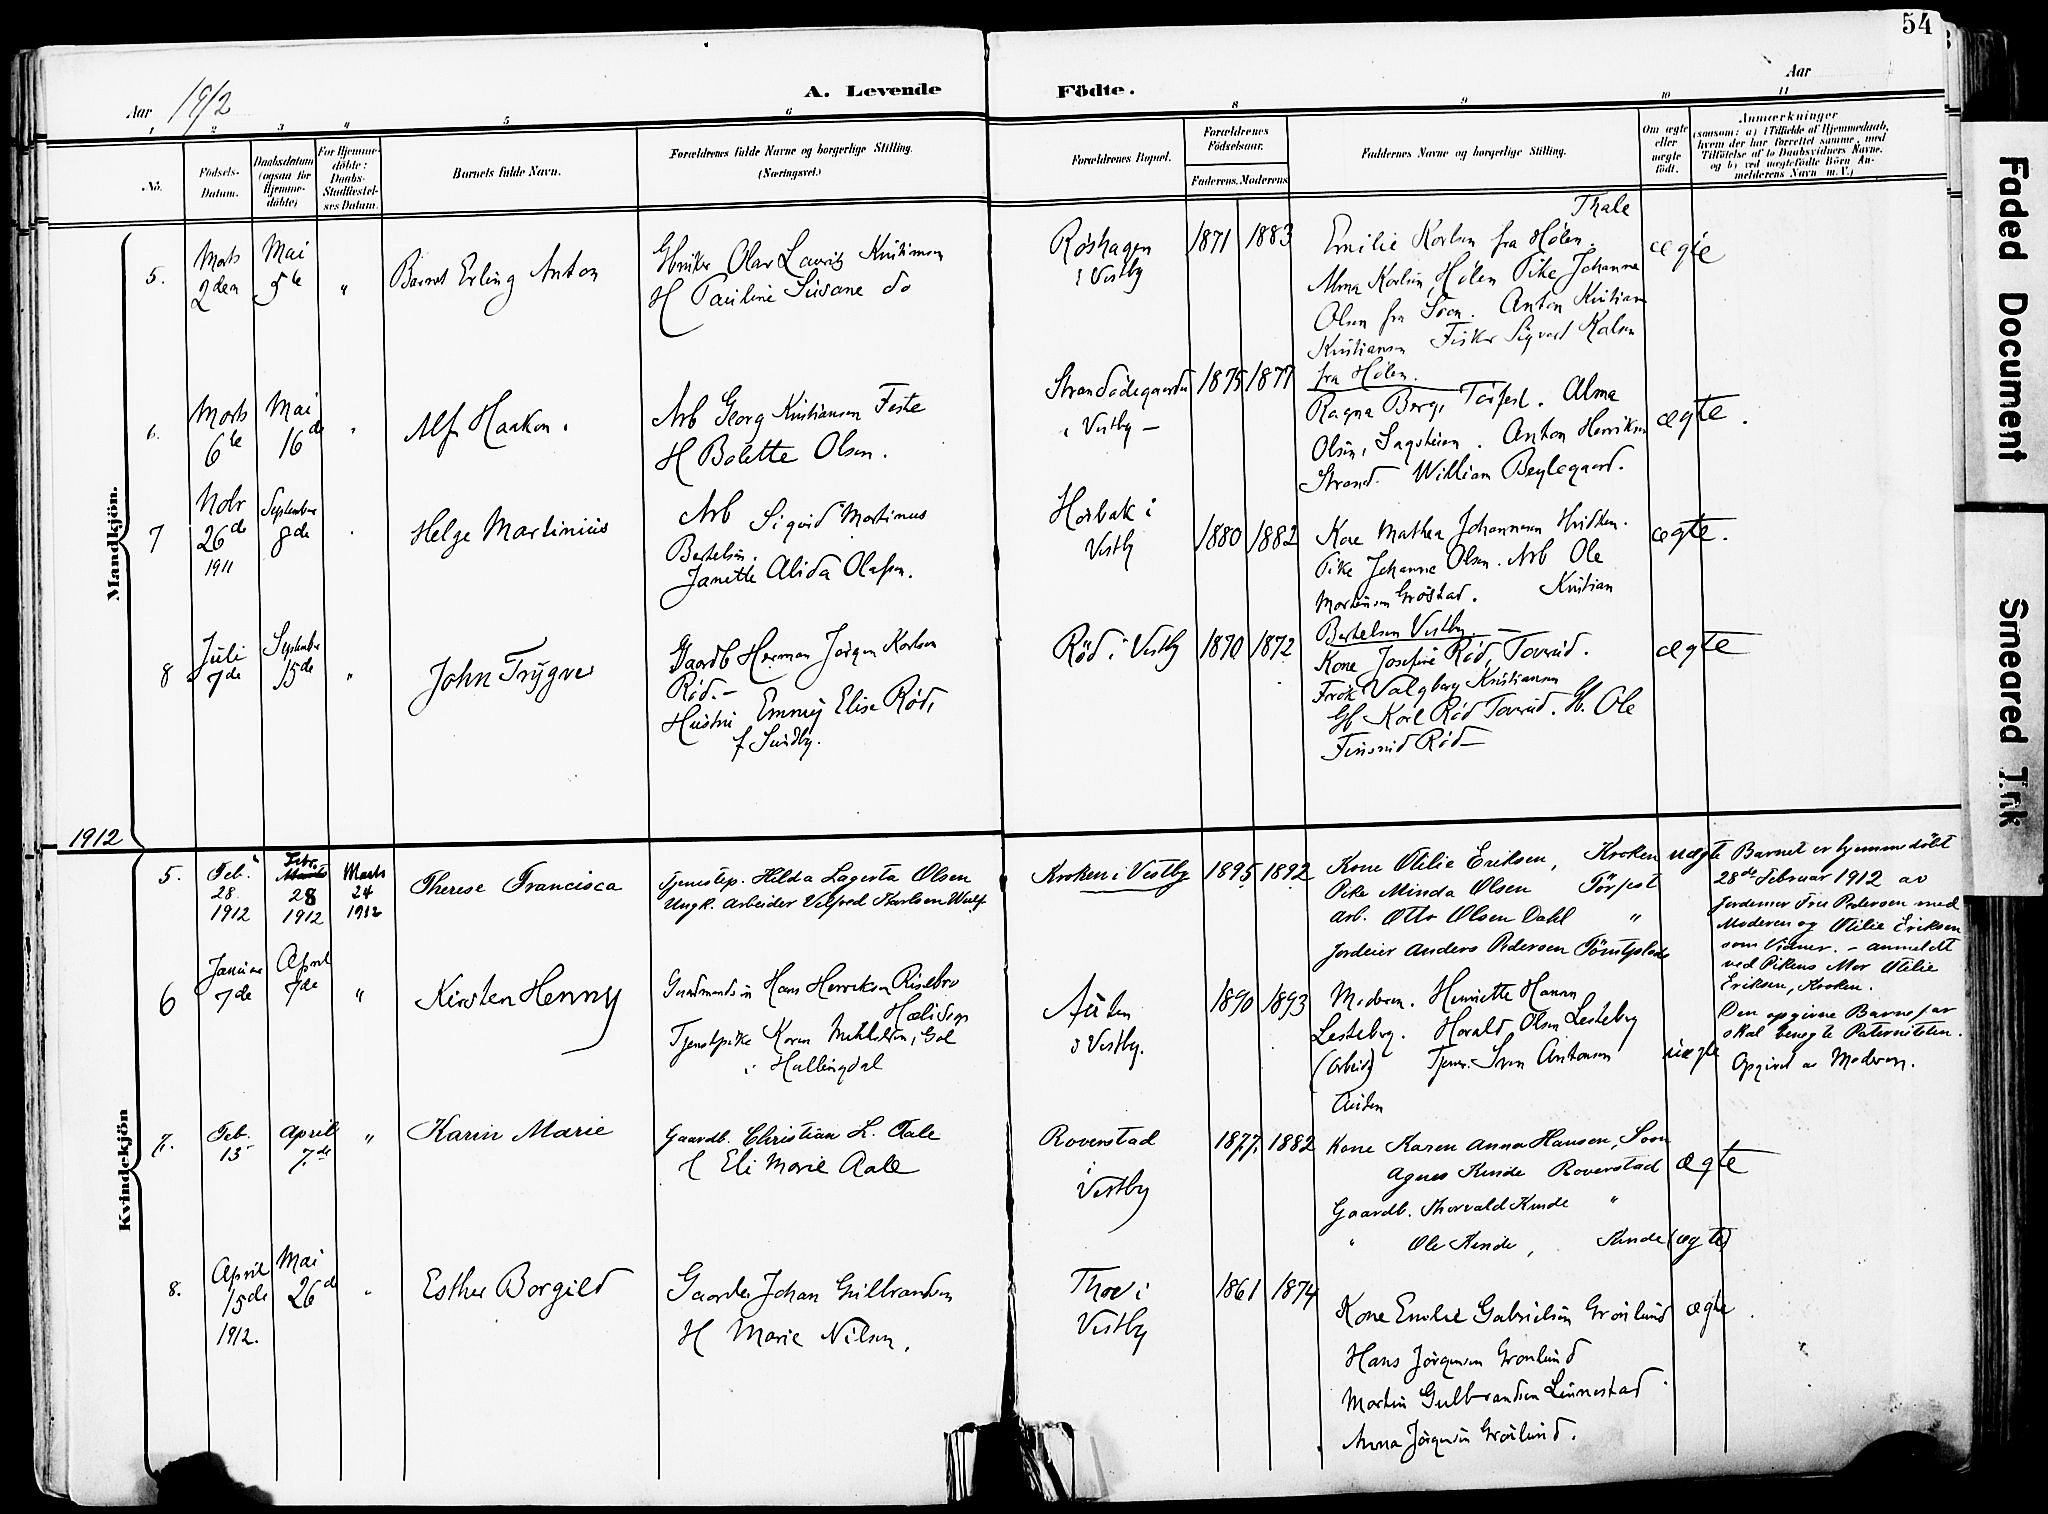 54
Aar 1912
A. Levende Födte.
Aar
1 2 3 4 5 6 8 9 10 11
No.
Födsels-Datum.
Daabsdatum (ogsaa for Hjemmedöbte)
For Hjemmedöbte: Daabs-Stadfæstelses Datum.
Barnets fulde Navn.
Forældrenes fulde Navne og borgerlige Stilling. (Næringsvei.)
Forældrenes Bopæl.
Forældrenes Födselsaar.
Faderens. Moderens
Faddernes Navne og borgerlige Stilling.
Om ægte eller uægte födt.
Anmærkninger
(saasom: a) i Tilfælde af Hjemmedaab,
hvem der har forrettet samme, med
Tilföielse af to Daabsvidners Navne,
og b) ved uægtefödte Börn An-
melderens Navn m. V.)
Mandkjön.
5.
Marts 2den
Mai 5te
"
Barnet Erling Anton
Olav Lauritz Kristiansen
H Pauline Susane do
Røshagen
i Vestby
1871
1883
Thale
Emilie Karlsen fra Hølen.
Alma Karlsen, Hølen Pike Johanna
Olsen fra Soon. Anton Kristian
Kristiansen Fisker Sigvard Kalsen
fra Hølen.
ægte
6.
Marts 6te
Mai 16de
"
Alf Haakon.
Arb Georg Kristiansen Feste
H Bolette Olsen.
i Vestby —
1875
1877
Ragna Berg, Alma
Olsen, Anton Henriksen
Strand. William
ægte.
7
Nobr 26de 1911
September 8de
Helge Martinius
Arb Sigurd Martinus
Bertelsen.
Janette Alida Olafsen.
Horbak i
Vestby
1880
1882
Kone Mathea Johannesen
Pike Johanne Olsen. Arb Ole
Kristian
Bertelsen Vestby. —
ægte.
8
Juli 7de
September 15de
"
John Trygve
Gaardb Herman Jørgen Karlsen
Rød. —
Hustru Emmy Elise Rød,
f Sundby.
Rød i Vestby
1870
1872
Kone Josefine Rød, Taverud.
Frøk Valgberg Kristiansen
Gb Karl Rød Taverud. Gb. Ole
Rød —
ægte
1912
Kvindekjön
5.
Feb. 28. 1912
Febr. Marts 28 1912
Marts 24 1912
Therese Francisca
Tjenestep. Hilda Lagerta Olsen
Ungk. Arbeider Vilfred Karlsen Wulf
Kroken i Vestby
1895
1892
Kone Otilie Eriksen, Kroken
Pike Minda Olsen Törfest
Arb. Otto Olsen Dahl "
Jordeier Anders Pedersen
uægte
Barnet er hjemmedöbt
28de Februar 1912 av
Jordemor Fru Pedersen med
Moderen og Otilie Eriksen
som Vidner. — anmeldt
ved Pikens Mor Otilie
Eriksen, Kroken.
6
Januar 7de
April 7de
"
Kirsten Henny
Hans Henriksen Risebro
Tjenestpike Karen Gol
i Hallingdal
i Vestby.
1890
1893
Moderen. Henriette Hansen
Lesteberg. Harald Olsen Lesteberg
(Arbeid) Tjener Sven Antonsen
uægte
Den opgivne Barnefar
skal benegte Paterniteten.
Opgivet av Moderen.
7.
Feb. 13
April 7.de
"
Karin Marie
Gaardb. Christian L. Aale
H Eli Marie Aale
Roverstad
i
Vestby
1877.
1882
Kone Karen Anna Hansen, Soon
Agnes Kinde Roverstad
Gaardb. Thorvald Kinde "
" Ole Kinde, Kinde
ægte
(ægte)
8.
April 15de 1912.
Mai 26de
"
Esther Borgild
Johan Gulbrandsen
H Marie Nilsen.
i
Vestby
1861
1874
Kone Emilie Gabrielsen Grønlund
Hans Jørgensen Grønlund
Martin Gulbrandsen Linnestad.
Anna Jørgensen Grønlund.
ægte.
Faded Document
Smeared Ink